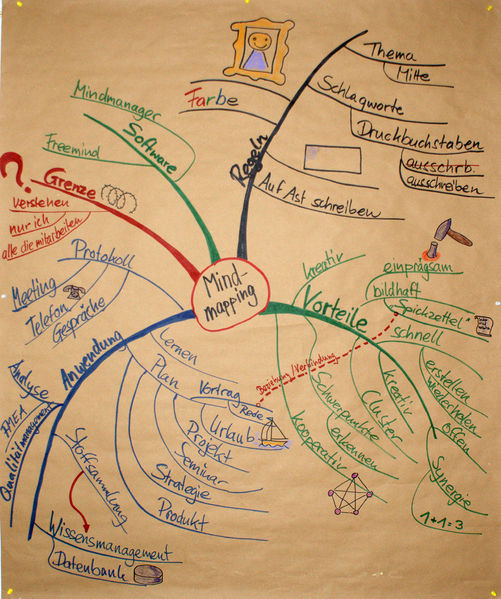 Mind-
mapping
Regeln
Thema
Mitte
Schlagworte
Druckbuchstaben
ausschrb.
ausschreiben
Farbe
Auf Ast schreiben
Software
Mindmanager
Freemind
?
Grenze
verstehen
nur ich
alle die mitarbeiten
Vorteile
kreativ
einprägsam
bildhaft
Spickzettel
schnell
erstellen
wiederholen
offen
kreativ
Synergie
1+1=3
Cluster
Schwerpunkte
erkennen
kooperativ
Beziehung/Verbindung
Anwendung
Protokoll
Meeting
Telefon
Gespräche
Lernen
Plan
Vortrag
Rede
Urlaub
Projekt
Seminar
Strategie
Produkt
Analyse
FMEA
Qualitätmanagement
Stoffsammlung
Wissensmanagement
Datenbank